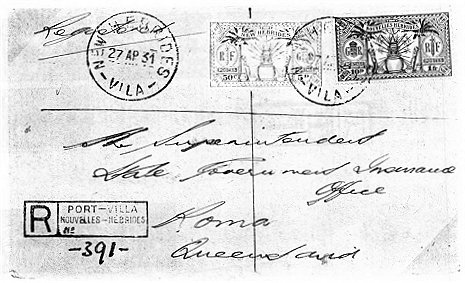 Registered
NEW HEBRIDES
27 AP 31
VILA
NEW HEBRIDES
RF
50c
5d
VILA
NOUVELLES HEBRIDES
RF
10d
1fr
The Superintendent
State Government Insurance
Office
Roma
Queensland
R
PORT-VILLA
NOUVELLES-HEBRIDES
No
-391-